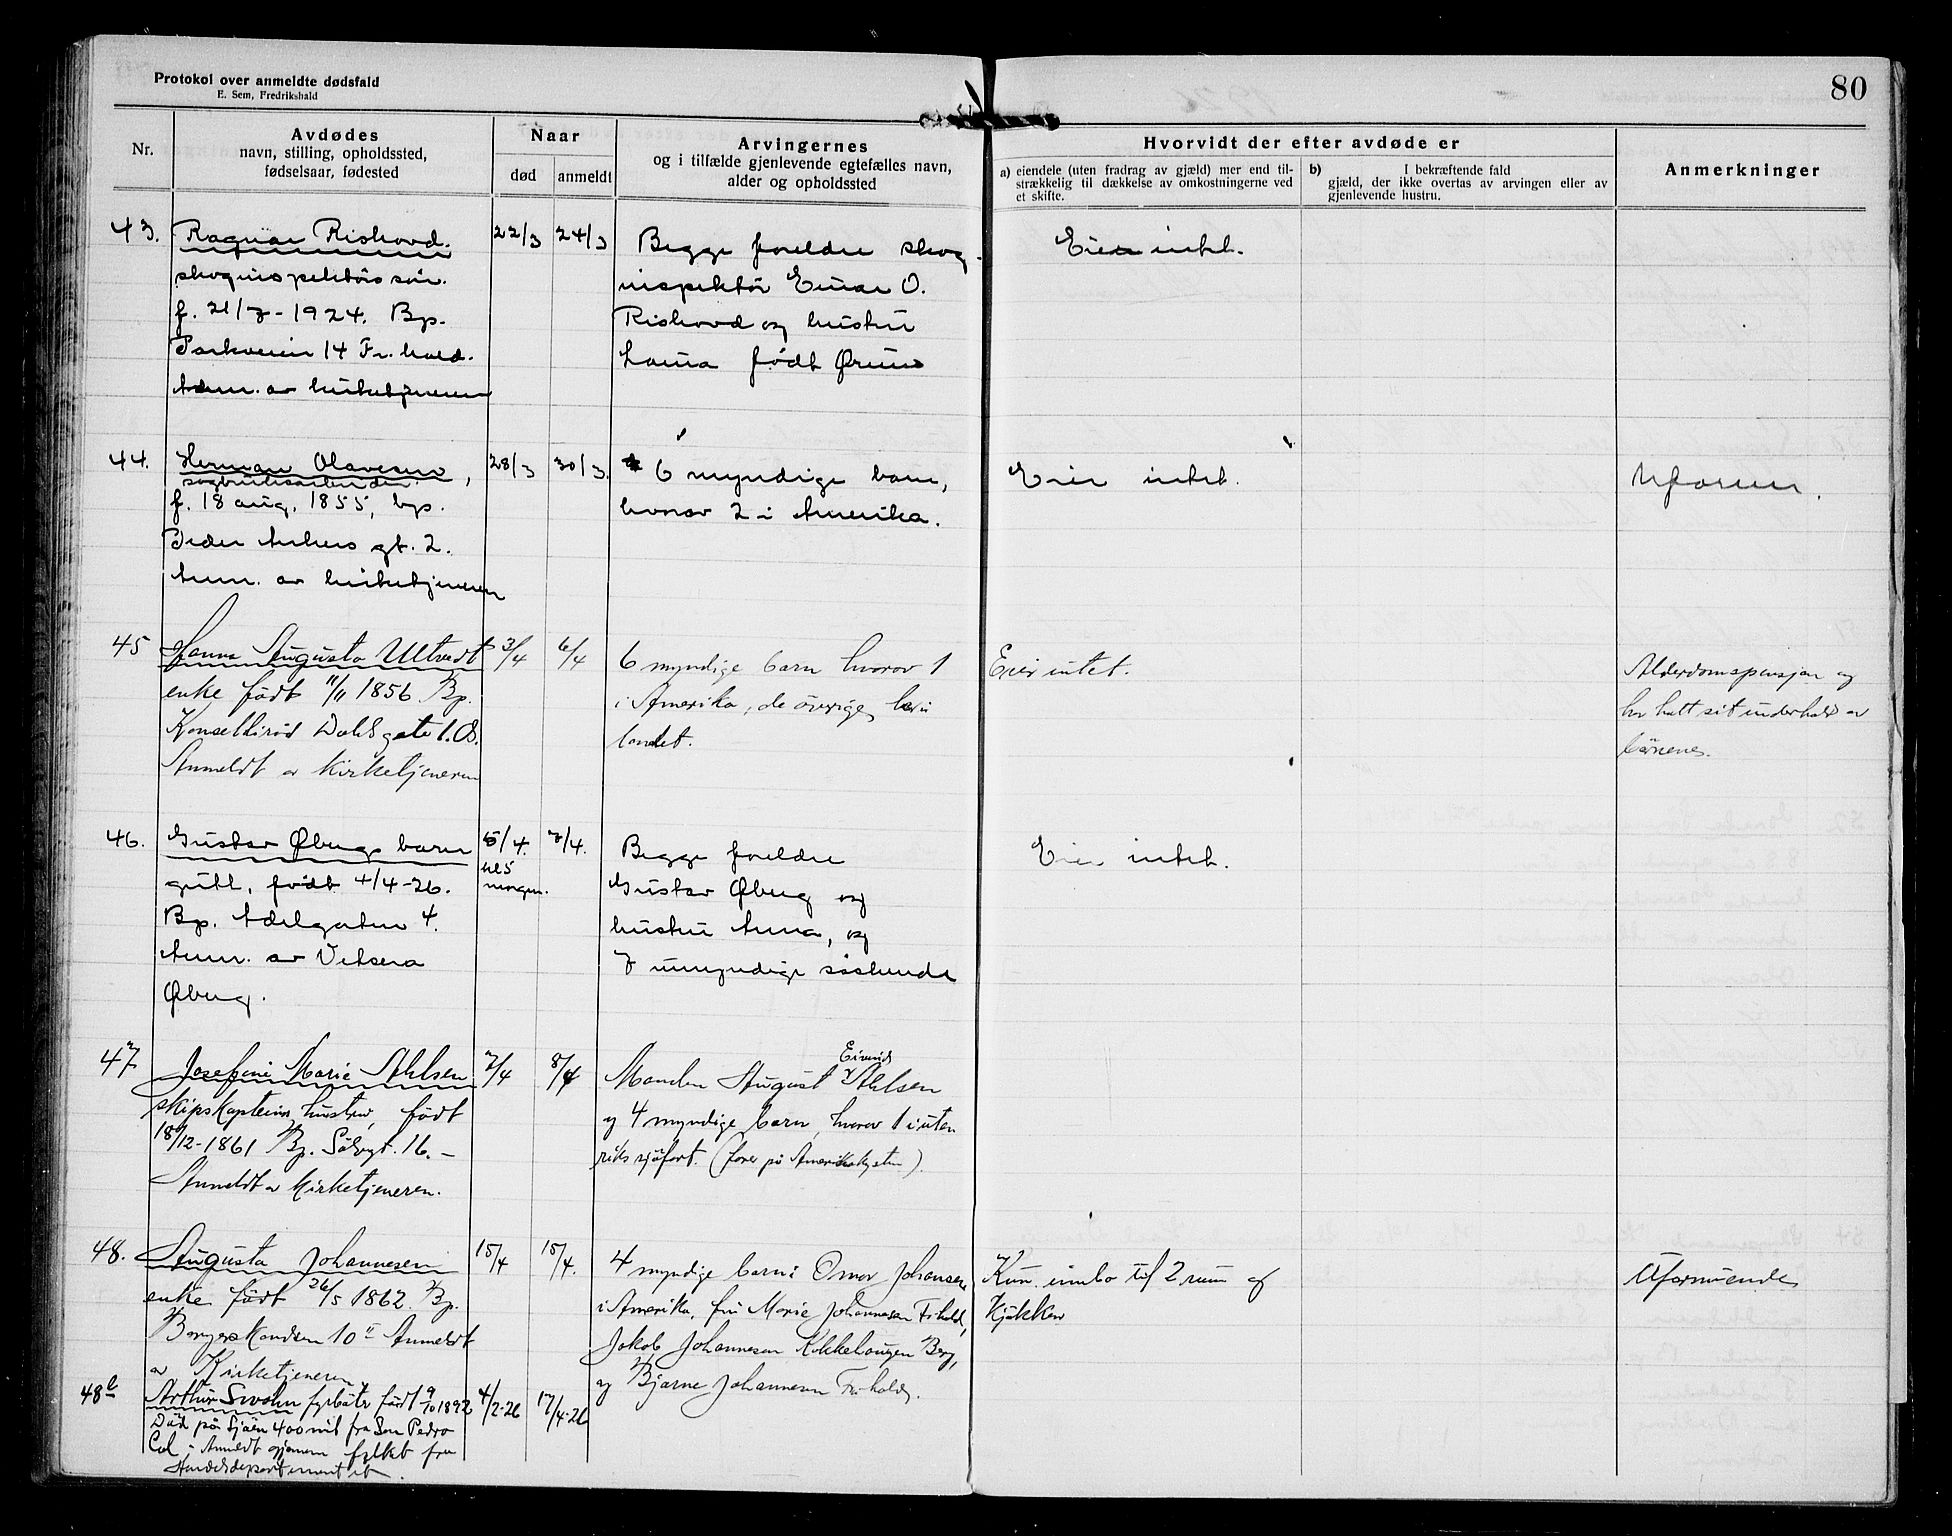 Protokol over anmeldte dødsfald
E. Sem, Fredrikshald
80
Nr.
Avdødes
navn, stilling, opholdssted,
fødselsaar, fødested
Naar
død
anmeldt
Arvingernes
og i tilfælde gjenlevende egtefælles navn,
alder og opholdssted
Hvorvidt der efter avdøde er
a) eiendele (uten fradrag av gjæld) mer end til-
strækkelig til dækkelse av omkostningerne ved
et skifte.
b) I bekræftende fald
gjæld, der ikke overtas av arvingen eller av
gjenlevende hustru.
Anmerkninger
43.
Ragnar Rishovd.
skoginspektørs søn.
f. 21/7-1924. Bp.
Parkveien 14 Fr.hald.
Anm. av kirketjeneren
22/3
24/3
Begge foreldre skog-
inspektör Einar O.
Rishovd og hustru
født
Eier intet.
44.
Herman Olavesen,
sagbruksarbeider.
f. 18 aug. 1855, bp.
Peder Ankers gt. 2.
Anm. av kirketjeneren
28/3
30/3.
6 myndige barn,
hvorav 2 i Amerika.
Eier intet.
45
Augusta Ultvedt
enke født 11/11 1856. Bp.
Dahls gate 1.B.
Anmeldt av kirketjeneren
3/4
6/4
6 myndige barn hvorav 1
i Amerika, de övrige her i
landet.
Eier intet.
Alderdomspensjon og
har hatt sit underhold av
börnene.
46.
Gustav Øbergs barn
gutt, født 4/4-26.
Bp. Adelgaten 4.
Anm. av
Øberg.
5/4.
kl 5
morgen.
7/4.
Begge foreldre
Gustav Øberg og
hustru Anna, og
7 umyndige søskende
Eier intet.
47
Josefine Marie Ahlsen
skipskapteins hustru, født
18/12-1861 Bp. Sølvgt. 16. –
Anmeldt av kirketjeneren.
7/4
8/4
Eivind
Manden August Ahlsen
og 4 myndige barn, hvorav 1 i uten
riks sjøfart. (farer på Amerikakysten).
48.
Augusta Johannesen
enke født 26/5 1862. Bp.
10 II Anmeldt
av Kirketjeneren
15/4
15/4.
4 myndige barn: Omar Johansen
i Amerika, fru Marie Johannesen Fr.hald,
Jakob Johannesen Kokkehaugen Berg,
og Bjarne Johannesen Fr.hald.
Kun innbo til 2 rum og
Kjøkken
Uformuende
48b
Arthur fyrbøter født 9/10 1892
Død på Sjøen 400 mil fra San Pedro
Cal – Anmeldt gjennem fylket fra
Handelsdepartementet.
4/2-26
17/4-26